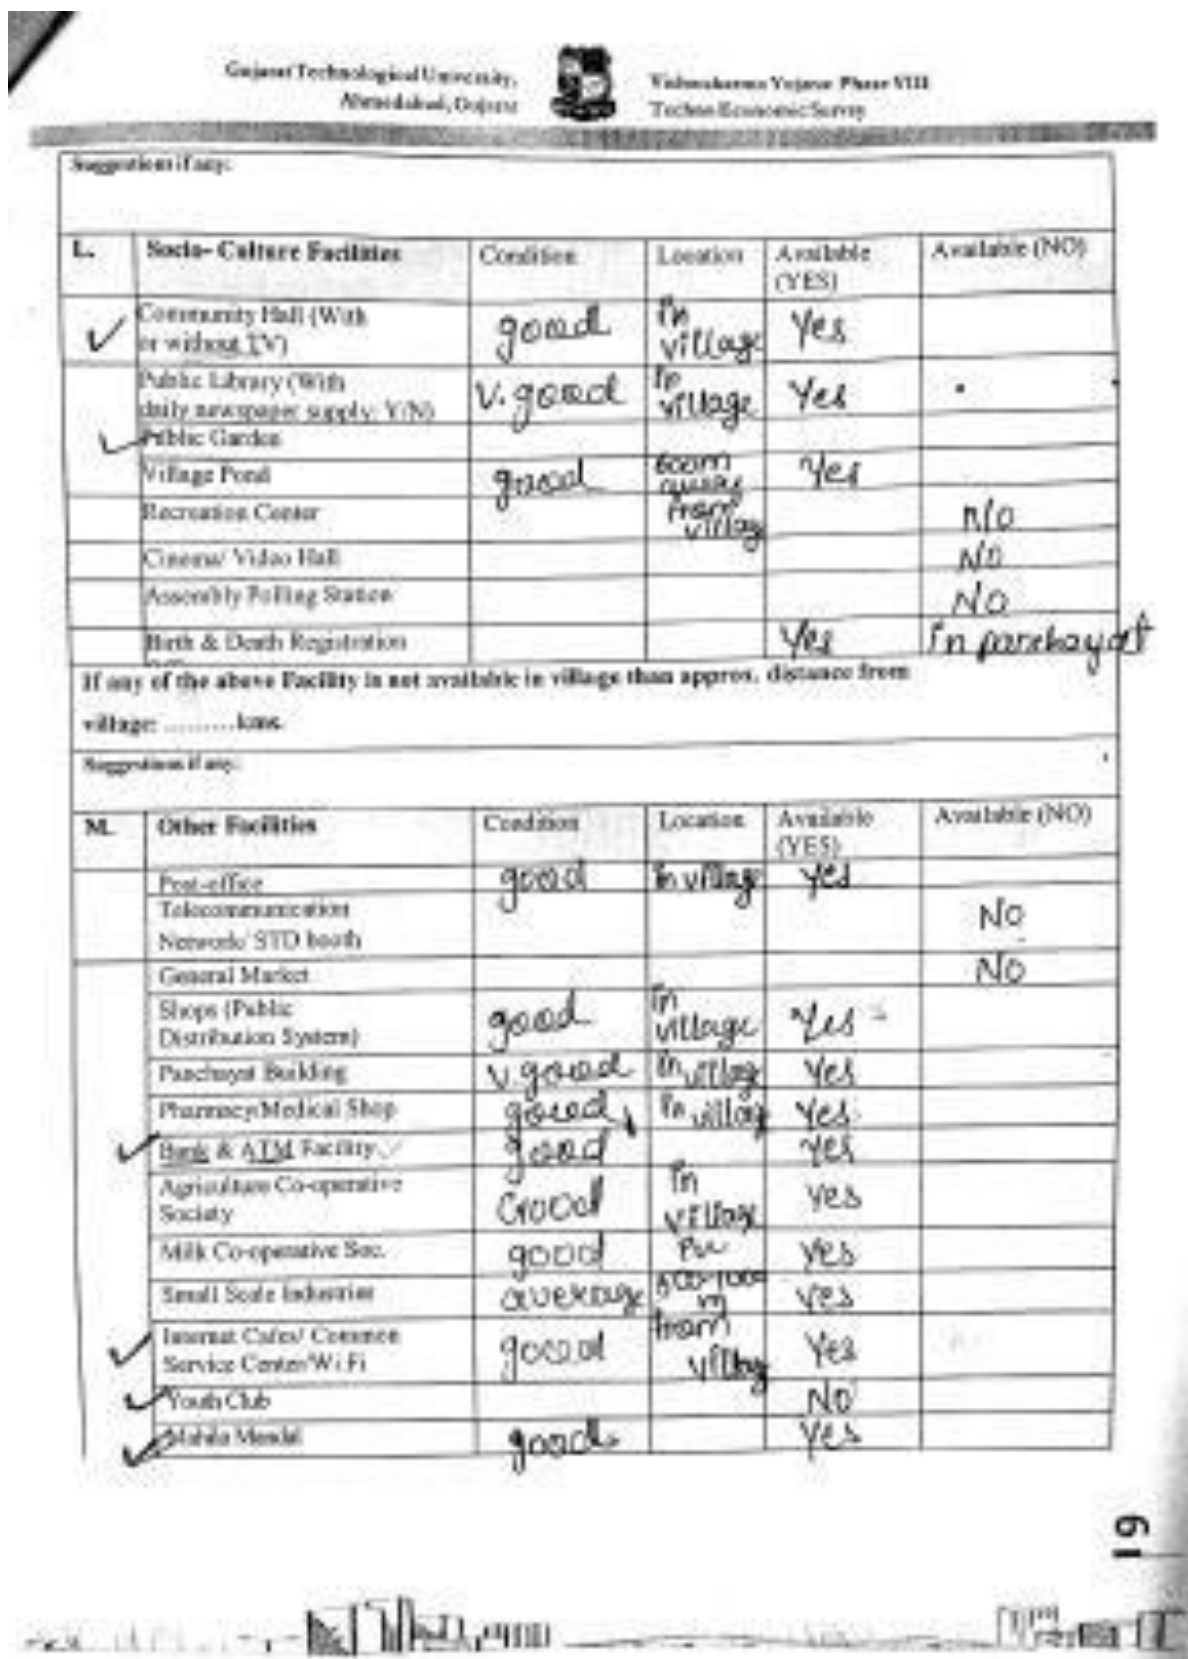 Gujarat Technological University,
Ahmedabad, Gujarat
Vishwakarma Yojana: Phase VIII
Techno Economic Survey
Suggestions if any:
L. Socio- Culture Facilities Condition Location Available (YES) Available (NO)
Community Hall (With or without TV) good In village Yes
Public Library (With daily newspaper supply: Y/N) V. good In village Yes
Public Garden
Village Pond good 600m away from village Yes
Recreation Center NO
Cinema/ Video Hall NO
Assembly Polling Station NO
Birth & Death Registration Yes In panchayat
If any of the above Facility is not available in village than approx. distance from
village: .........kms.
Suggestions if any:
M. Other Facilities Condition Location Available (YES) Available (NO)
Post-office good In village Yes
Telecommunication Network/ STD booth NO
General Market NO
Shops (Public Distribution System) good In village Yes
Panchayat Building V. good In village Yes
Pharmacy/Medical Shop good In village Yes
Bank & ATM Facility good Yes
Agriculture Co-operative Society Good In village Yes
Milk Co-operative Soc. good Yes
Small Scale Industries average m Yes
Internet Cafes/ Common Service Center/Wi Fi good from village Yes
Youth Club NO
Mahila Mandal good Yes
19